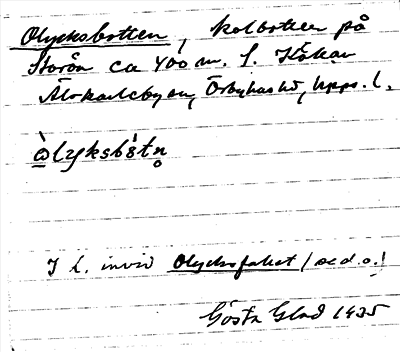 Olycksbotten, kolbotten på
Storön ca 400 m. S. Kökar
Älvkarleby sn, Örbyhus hd, Upps. l.
òlyksbòtn̥
I L. invid Olycksfallet (se d.o.)
Gösta Glad 1935